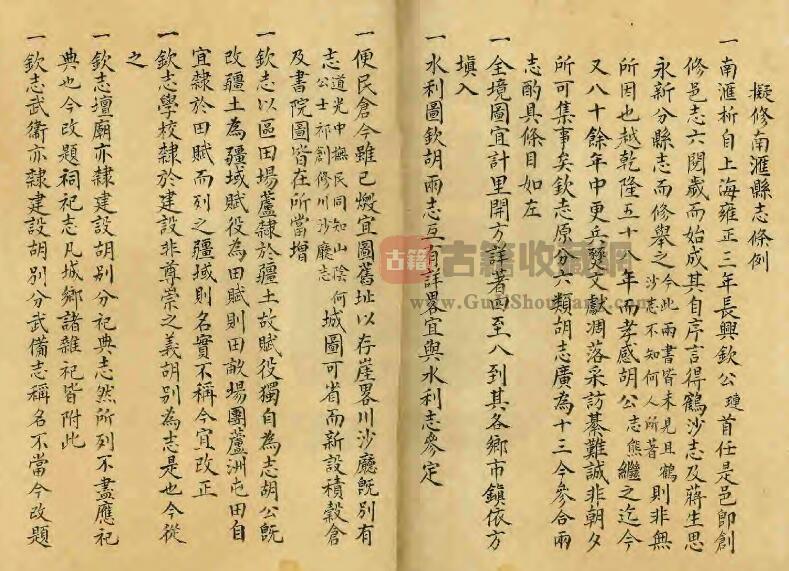 擬修南滙縣志條例
一南滙析自上海雍正三年長興欽公璉首任是邑卽創
修邑志六閱歲而始成其自序言得鶴沙志及蔣生思
永新分縣志而修舉之今此兩書皆未見且鶴沙志不知何人所著則非無
所因也越乾隆五十八年而孝感胡公志熊繼之迄今
又八十餘年中更兵燹文獻凋落采訪綦難誠非朝夕
所可集事矣欽志原分六類胡志廣為十三今參合兩
志酌具條目如左
一全境圖宜計里開方詳著四至八到其各鄉市鎮依方
塡入
一水利圖欽胡兩志互有詳畧宜與水利志參定
一便民倉今雖已燬宜圖舊址以存崖畧川沙廳旣別有
志道光中撫民同知山陰何公士祁創修川沙廳志城圖可省而新設積穀倉
及書院圖皆在所當增
一欽志以區田場蘆隸於疆土故賦役獨自為志胡公旣
改疆土為疆域賦役為田賦則田畝場團蘆洲屯田自
宜隸於田賦而列之疆域則名實不稱今宜改正
一欽志學校隸於建設非尊崇之義胡別為志是也今從
之
一欽志壇廟亦隸建設胡別分祀典志然所列不盡應祀
典也今改題祠祀志凡城鄉諸雜祀皆附此
一欽志武衛亦隸建設胡別分武備志稱名不當今改題
古籍
古籍收藏網
www.GuJiShouCang.com